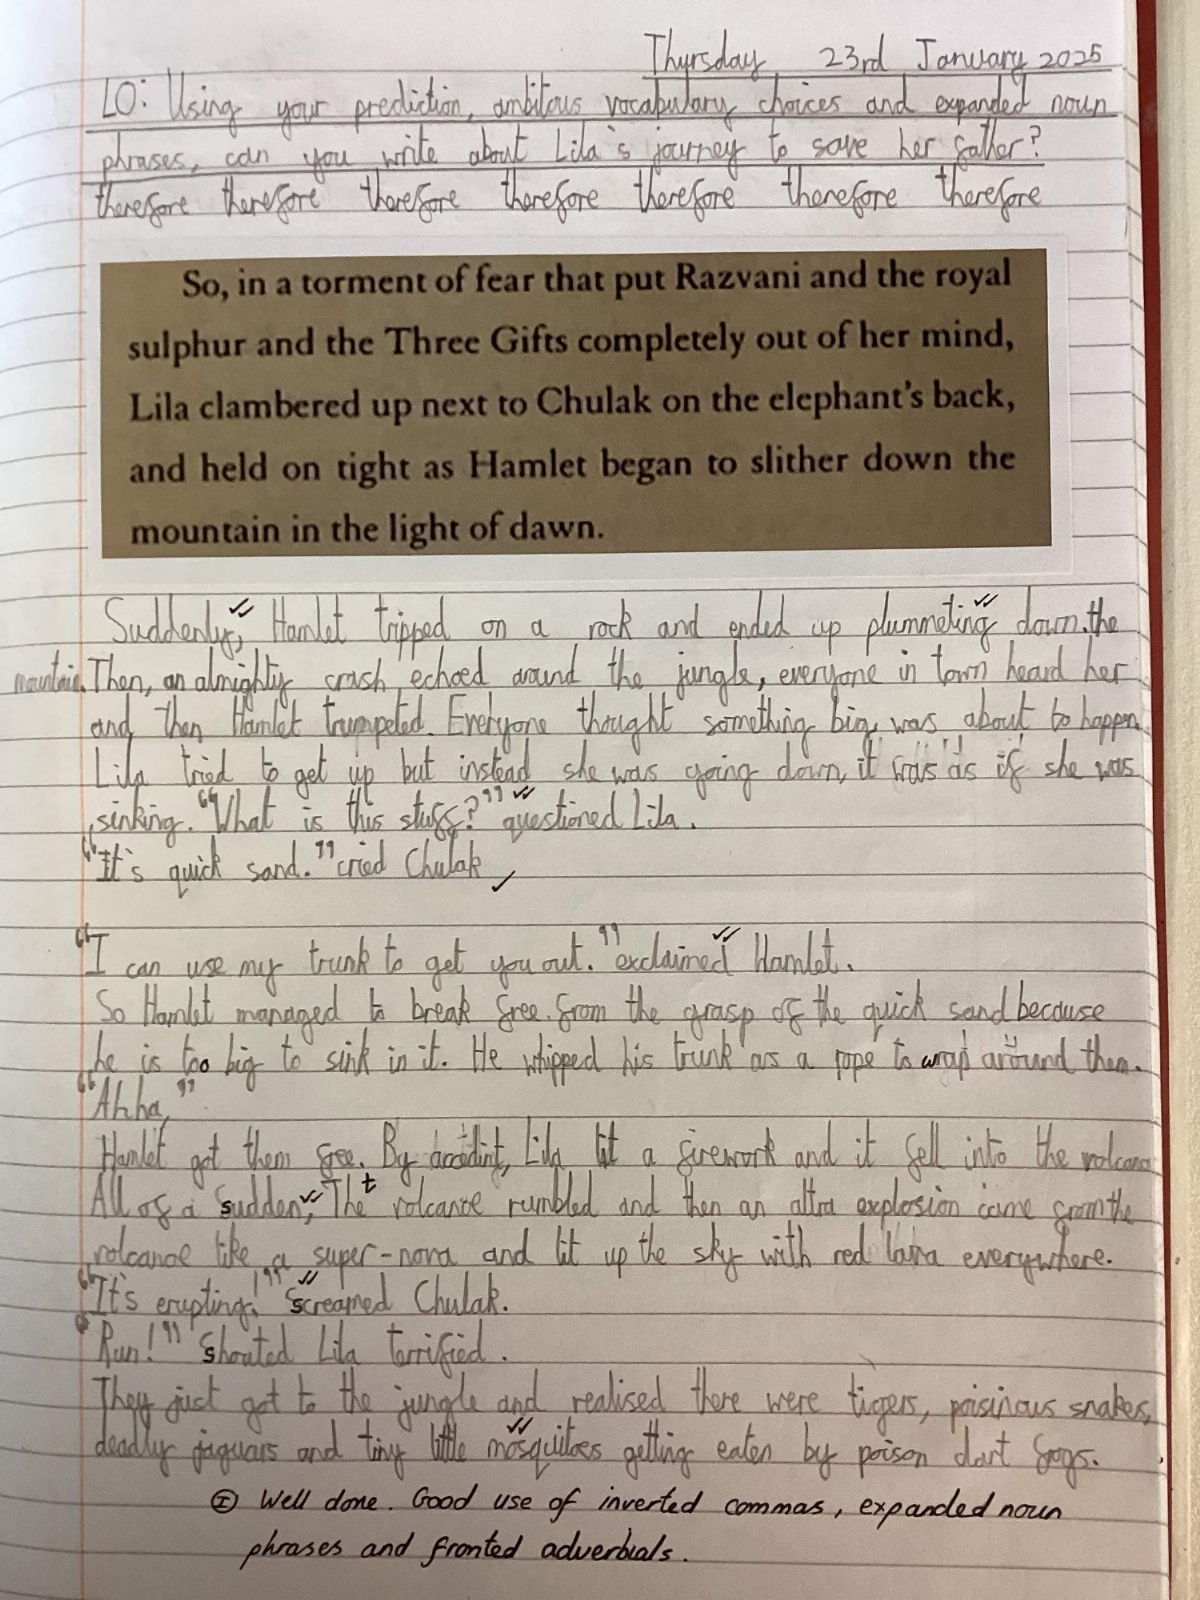 Thursday 23rd January 2025
LO: Using your prediction, ambitous vocabulary choices and expanded noun
phrases, can you write about Lila's journey to save her father?
therefore therefore therefore therefore therefore therefore therefore
So, in a torment of fear that put Razvani and the royal
sulphur and the Three Gifts completely out of her mind,
Lila clambered up next to Chulak on the elephant's back,
and held on tight as Hamlet began to slither down the
mountain in the light of dawn.
Suddenly, Hamlet tripped on a rock and ended up plummeting down the
mountain. Then, an almighty crash echoed around the jungle, everyone in town heard her
and then Hamlet trumpeted. Everyone thought something big was about to happen.
Lila tried to get up but instead she was going down, it was as if she was
sinking. "What is this stuff?" questioned Lila.
"It's quick sand." cried Chulak
"I can use my trunk to get you out." exclaimed Hamlet.
So Hamlet managed to break free from the grasp of the quick sand because
he is too big to sink in it. He whipped his trunk as a rope to wrap around them.
"Ahha,"
Hamlet got them free. By accedint, Lila lit a firework and it fell into the volcano
All of a sudden, The t volcanoe rumbled and then an altra explosion came from the
volcanoe like a super-nova and lit up the sky with red lava everywhere.
"It's erupting!" Screamed Chulak.
"Run!" Shouted Lila terrified.
They just got to the jungle and realised there were tigers, poisinous snakes,
deadly jaguars and tiny little mosquitoes getting eaten by poison dart frogs.
I Well done. Good use of inverted commas, expanded noun
phrases and fronted adverbials.